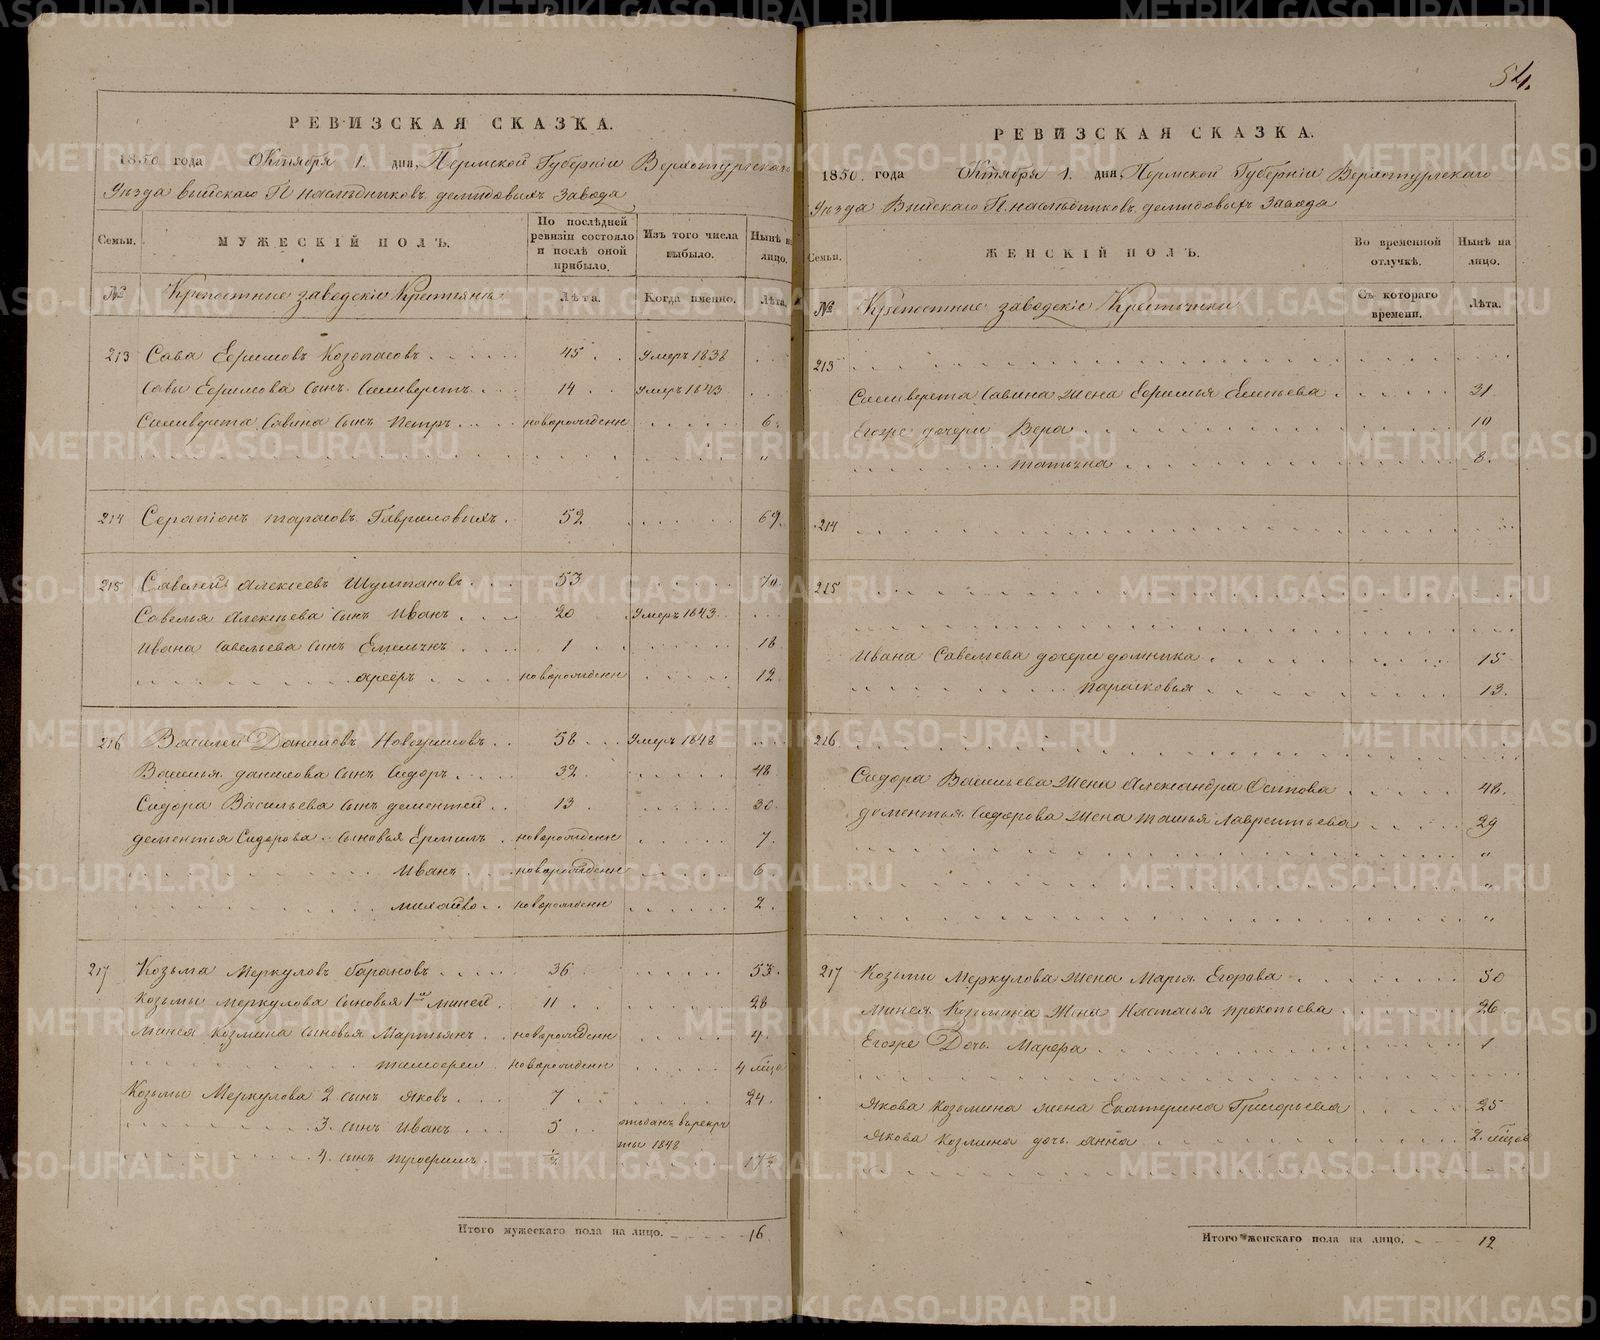 54.
РЕВИЗСКАЯ СКАЗКА.
1850 года Октября 1. дня, Пермской Губерніи Верхотурскаго
Уѣзда Выйскаго Г. Г. наслѣдниковъ демидовыхъ Завода
Семьи. МУЖЕСКІЙ ПОЛЪ. По послѣдней ревизіи состояло и послѣ оной прибыло. Изъ того числа выбыло. Нынѣ на лицо.
№ Крепостные заводскіе Крестьяне Лѣта. Когда именно. Лѣта.
213 Сава Ефимовъ Козопасовъ 45 Умеръ 1838
Савы Ефимова Сынъ Силиверстъ 14 умеръ 1843
Силиверста Савина Сынъ Петръ новорожденн 6.
214 Серапіонъ тарасовъ Гавриловыхъ 52 69.
215 Савелей Алексеевъ Шултановъ 53 70.
Савелья Алексѣева Сынъ Иванъ 20 Умеръ 1843
Ивана Савельева Сынъ Емельянъ 1 18
новорожденн 12
216 Василей Даниловъ Новожиловъ 58 Умеръ 1848
Василья данилова Сынъ Сидоръ 32 48
Сидора Васильева Сынъ дементей 13 30
дементья Сидорова Сыновья Ермилъ новорожденн 7.
Иванъ новорожденн 6
михайло новорожденн 2.
217 Козьма Меркуловъ Барановъ 36 53.
Козьмы меркулова Сыновья 1й миней 11 28
минея Козмина Сыновья Мартьянъ новорожденн 4.
тимофеи новорожденн 4 мѣсяца
Козьмы Меркулова 2 сынъ Яковъ 7 24.
3. сынъ Иванъ 5 отданъ въ рекруты 1848
4. сынъ трофимъ ½ 17½
Итого мужескаго пола на лицо. 16
РЕВИЗСКАЯ СКАЗКА.
1850. года Октября 1. дня, Пермской Губерніи Верхотурскаго
Уѣзда Выйскаго Г. Г. наслѣдниковъ демидовыхъ Завода
Семьи. ЖЕНСКІЙ ПОЛЪ. Во временной отлучкѣ. Нынѣ на лицо.
№ Крѣпостные заводскіе Крестьянки Съ котораго времени. Лѣта.
213
Силиверста Савина жена Ефимья 31
Егоже дочери Вера 10
татьяна 8.
214
215
Ивана Савельева дочери домника 15
парасковья 13.
216
Сидора Васильева жена Александра Осипова 48.
дементья Сидорова жена Лаврентьева 29
217 Козьмы Меркулова жена Марья Егорова 50
минея Козмина жена Наталья прокопьева 26.
Егоже Дочь Марфа 1
Якова Козьмина жена Екатерина Григорьева 25
Якова Козмина дочь анна 2. мѣсяца
Итого женскаго пола на лицо. 12
METRIKI.GASO-URAL.RU